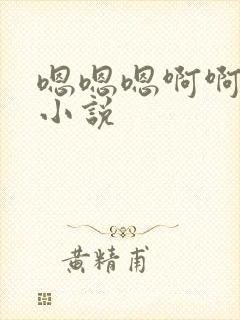 嗯嗯嗯啊啊
小说
黄精甫